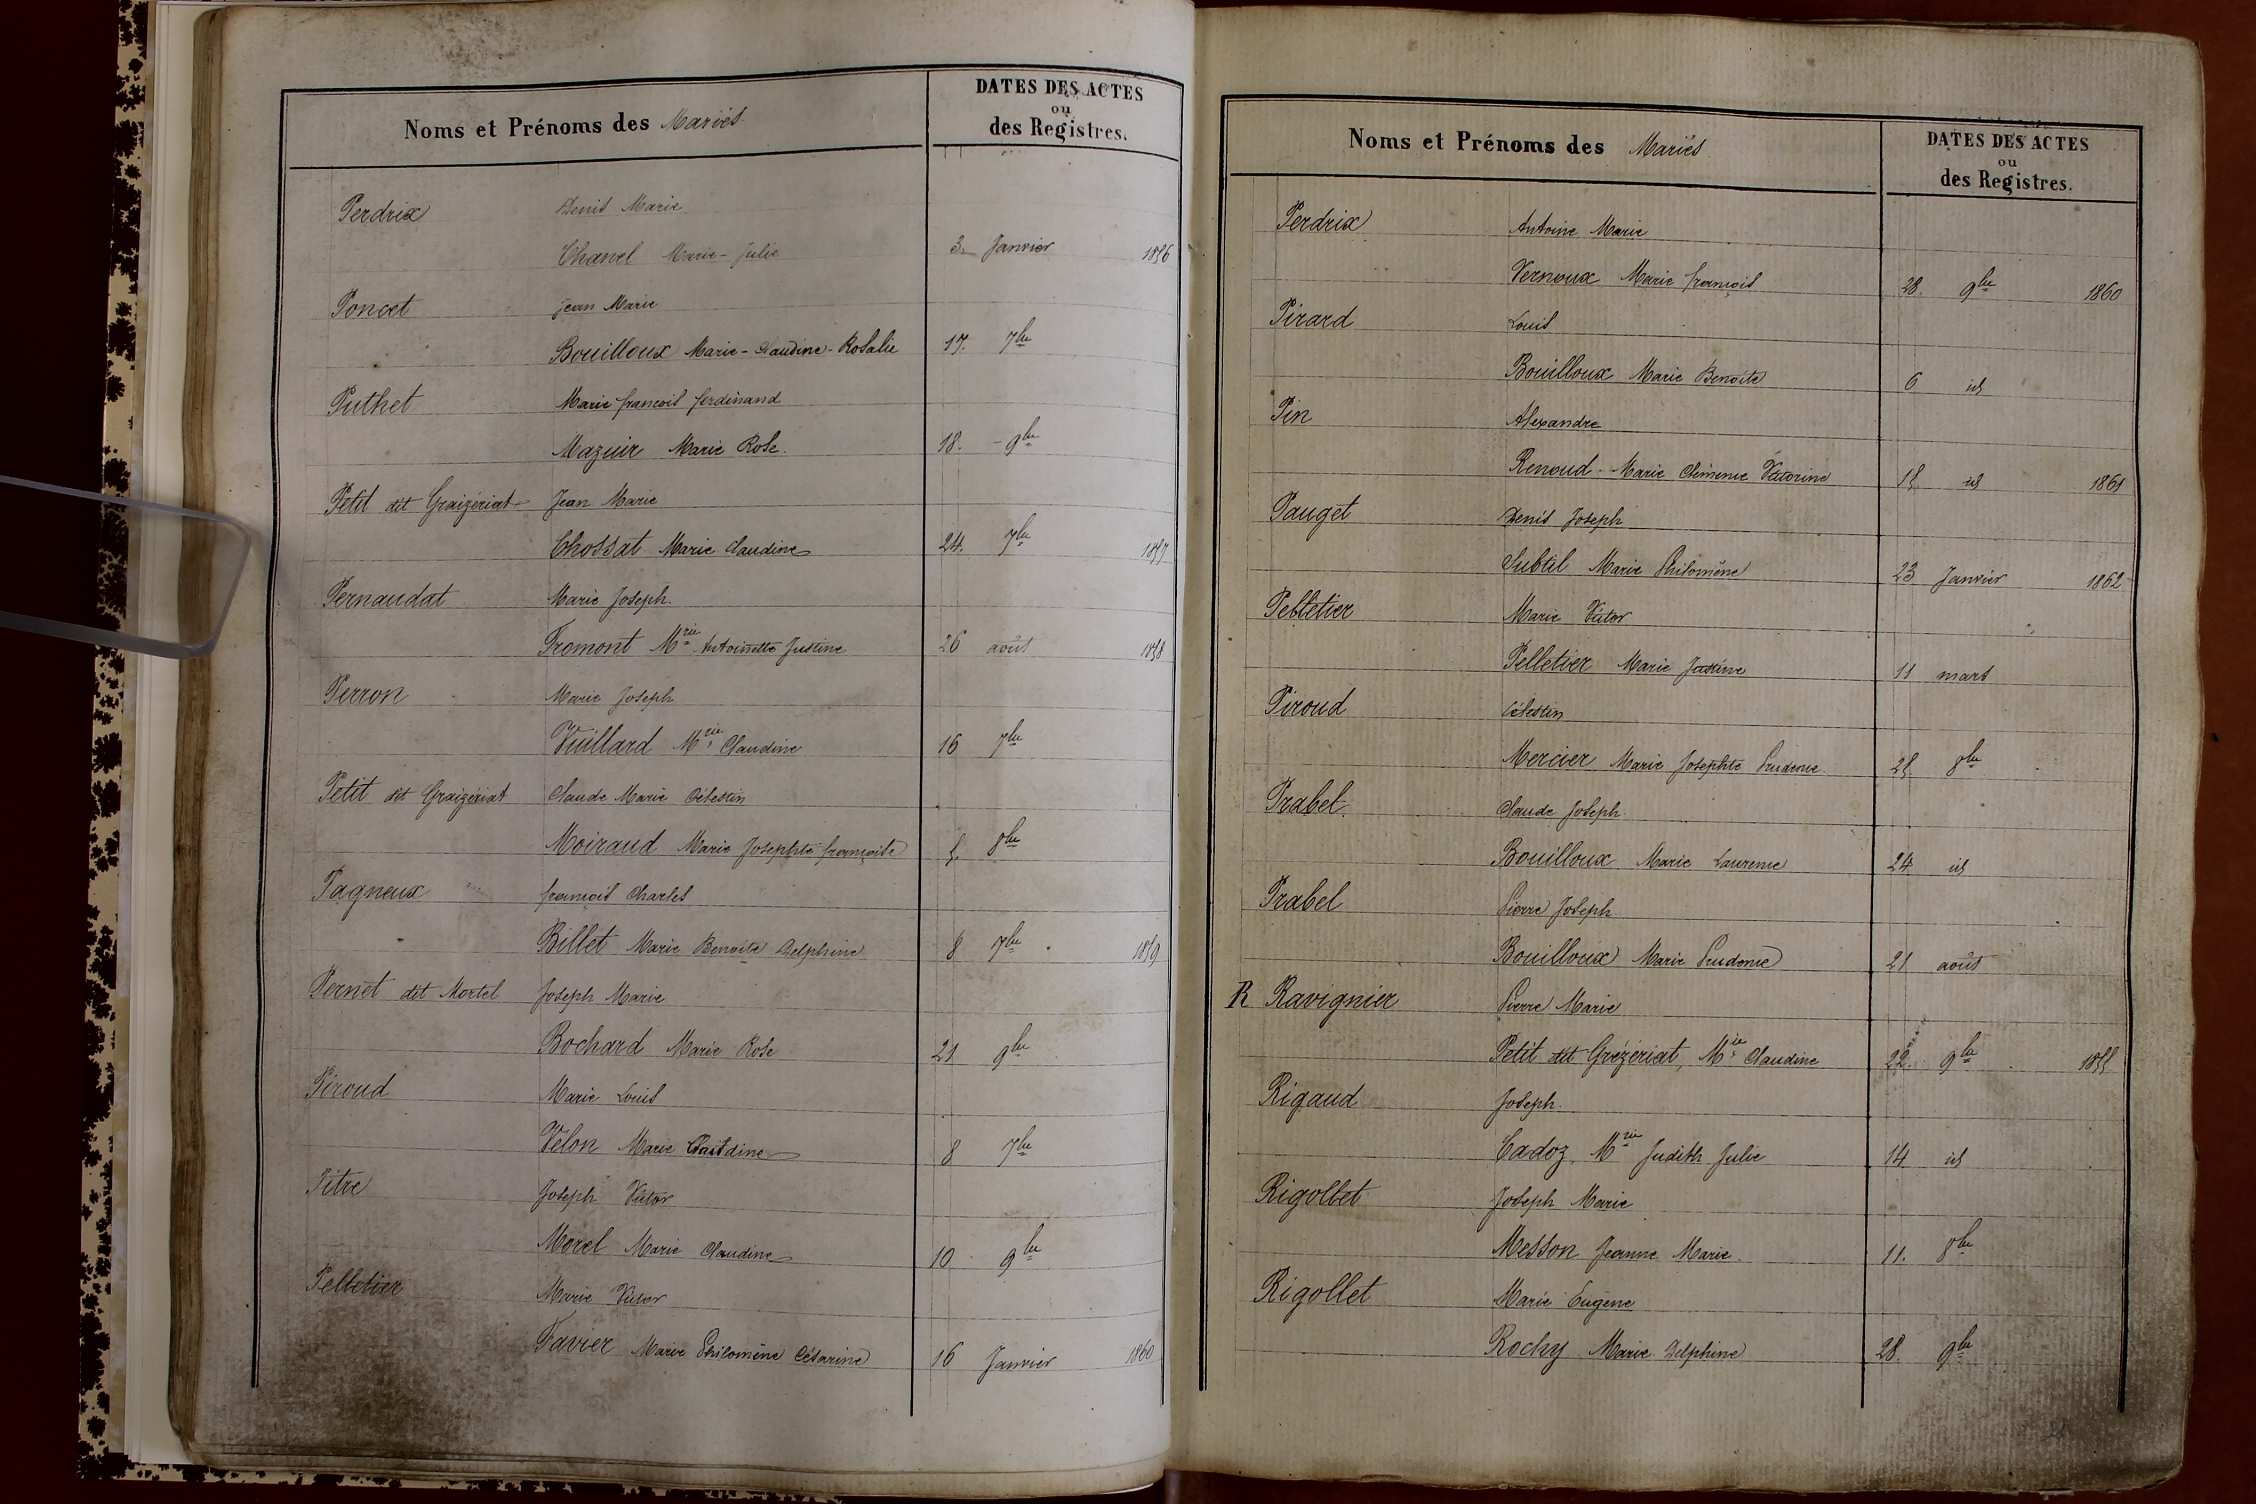 Noms et Prénoms des Mariés
DATES DES ACTES
ou
des Registres.
Perdrix Denis Marie
Chanel Marie-Julie 3 Janvier 1856
Poncet Jean Marie
Bouilloux Marie-Claudine-Rosalie 17. 7bre
Puthet Marie françois ferdinand
Mazuir Marie Rose. 18. - 9bre
Petit dit Graizeriat Jean Marie
Chossat Marie Claudine 24. 7bre 1857
Pernaudat Marie Joseph
Fromont Mrie Antoinette Justine 26 août 1858
Perron Marie Joseph
Vuillard Mrie Claudine 16 7bre
Petit dit Graizeriat Claude Marie Célestin
Moiraud Marie Josephte françoise 5. 8bre
Pagneux françois Charles
Billet Marie Benoite Delphine 8 7bre 1859
Pernet dit Mortel Joseph Marie
Bochard Marie Rose 21 9bre
Piroud Marie Louis
Velon Marie Claudine 8 7bre
Pitre Joseph Victor
Morel Marie Claudine 10 9bre
Pelletier Marie Victor
Favier Marie Philomène Césarine 16 Janvier 1860
Noms et Prénoms des Mariés
DATES DES ACTES
ou
des Registres.
Perdrix Antoine Marie
Vernoux Marie françois 28. 9bre 1860
Pirard Louis
Bouilloux Marie Benoite 6 id
Pin Alexandre
Renoud Marie Clémence Victorine 15 id 1861
Pauget Denis Joseph
Subtil Marie Philomène 23 Janvier 1862
Pelletier Marie Victor
Pelletier Marie Justine 11 mars
Piroud Célestin
Mercier Marie Josephte Prudence 25 8bre
Prabel Claude Joseph
Bouilloux Marie Laurence 24 id
Prabel Pierre Joseph
Bouilloux Marie Prudence 21 août
R Ravignier Pierre Marie
Petit dit Grézériat, Mrie Claudine 22 9bre 1855
Rigaud Joseph
Cadoz Mrie Judith Julie 14 id
Rigollet Joseph Marie
Messon Jeanne Marie 11. 8bre
Rigollet Marie Eugène
Rochy Marie Delphine 28. 9bre